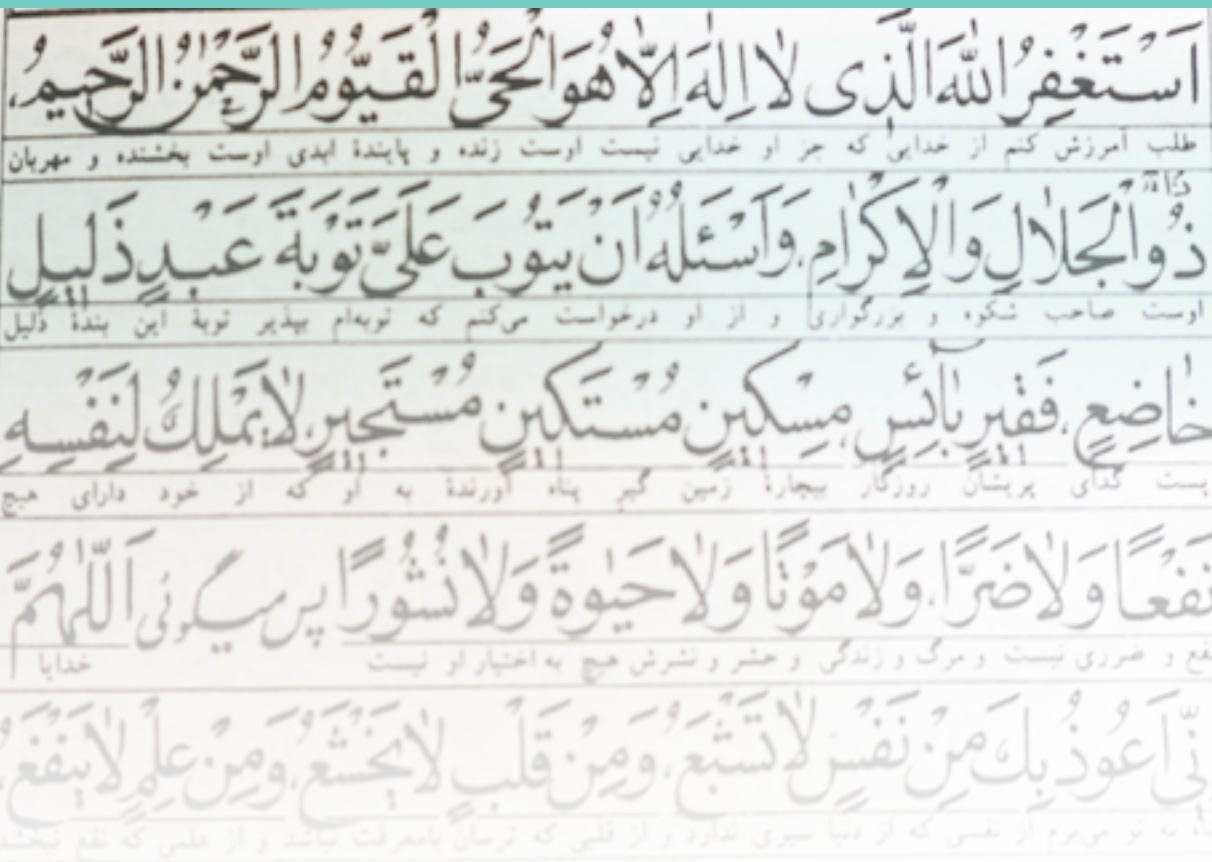 اَسْتَغْفِرُ اللّٰهَ الَّذِی لٰا اِلٰهَ اِلّٰا هُوَ الْحَیُّ الْقَیُّومُ الرَّحْمٰنُ الرَّحِیمُ،
طلب آمرزش کنم از خدایی که جز او خدایی نیست اوست زنده و پایندهٔ ابدی اوست بخشنده و مهربان
ذُو الْجَلٰالِ وَ الْاِکْرٰامِ، وَ اَسْئَلُهُ اَنْ یَتُوبَ عَلَیَّ تَوْبَةَ عَبْدٍ ذَلِیلٍ
اوست صاحب شکوه و بزرگواری و از او درخواست می‌کنم که توبه‌ام بپذیر توبهٔ این بندهٔ ذلیل
خٰاضِعٍ، فَقِیرٍ بٰائِسٍ، مِسْکِینٍ مُسْتَکِینٍ مُسْتَجِیرٍ لٰا یَمْلِكُ لِنَفْسِهِ
پست گدای پریشان روزگار بیچارهٔ زمین گیر پناه آورندهٔ به او که از خود دارای هیچ
نَفْعًا وَ لٰا ضَرًّا، وَ لٰا مَوْتًا وَ لٰا حَیٰوةً وَ لٰا نُشُورًا پس میگوئی اَللّٰهُمَّ
نفع و ضرری نیست و مرگ و زندگی و حشر و نشرش هیچ به اختیار او نیست خدایا
نِّی اَعُوذُ بِكَ مِنْ نَفْسٍ لٰا تَشْبَعُ، وَ مِنْ قَلْبٍ لٰا یَخْشَعُ، وَ مِنْ عِلْمٍ لٰا یَنْفَعُ،
به تو می‌برم از نفسی که از دنیا سیری ندارد و از قلبی که ترسان بامعرفت نباشد و از علمی که نفع نبخشد